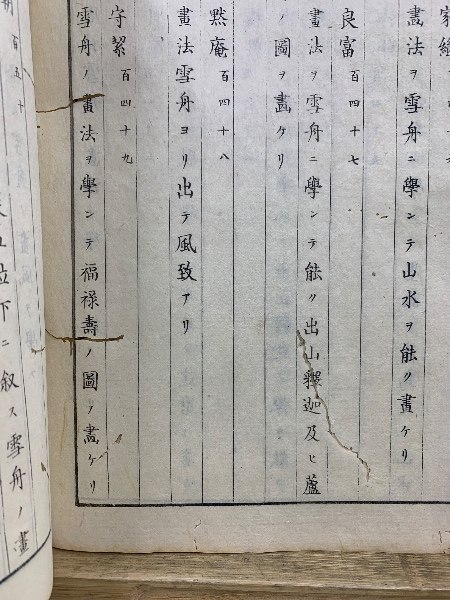 畫法ヲ雪舟ニ學ンテ山水ヲ能ク畫ケリ
良富 百四十七
畫法ヲ雪舟ニ學ンテ能ク出山釋迦及ヒ蘆
ノ圖ヲ畫ケリ
黙庵 百四十八
畫法雪舟ヨリ出テ風致アリ
守絜 百四十九
雪舟ノ畫法ヲ學ンテ福禄壽ノ圖ヲ畫ケリ
百五十
五位下ニ叙ス雪舟ノ畫